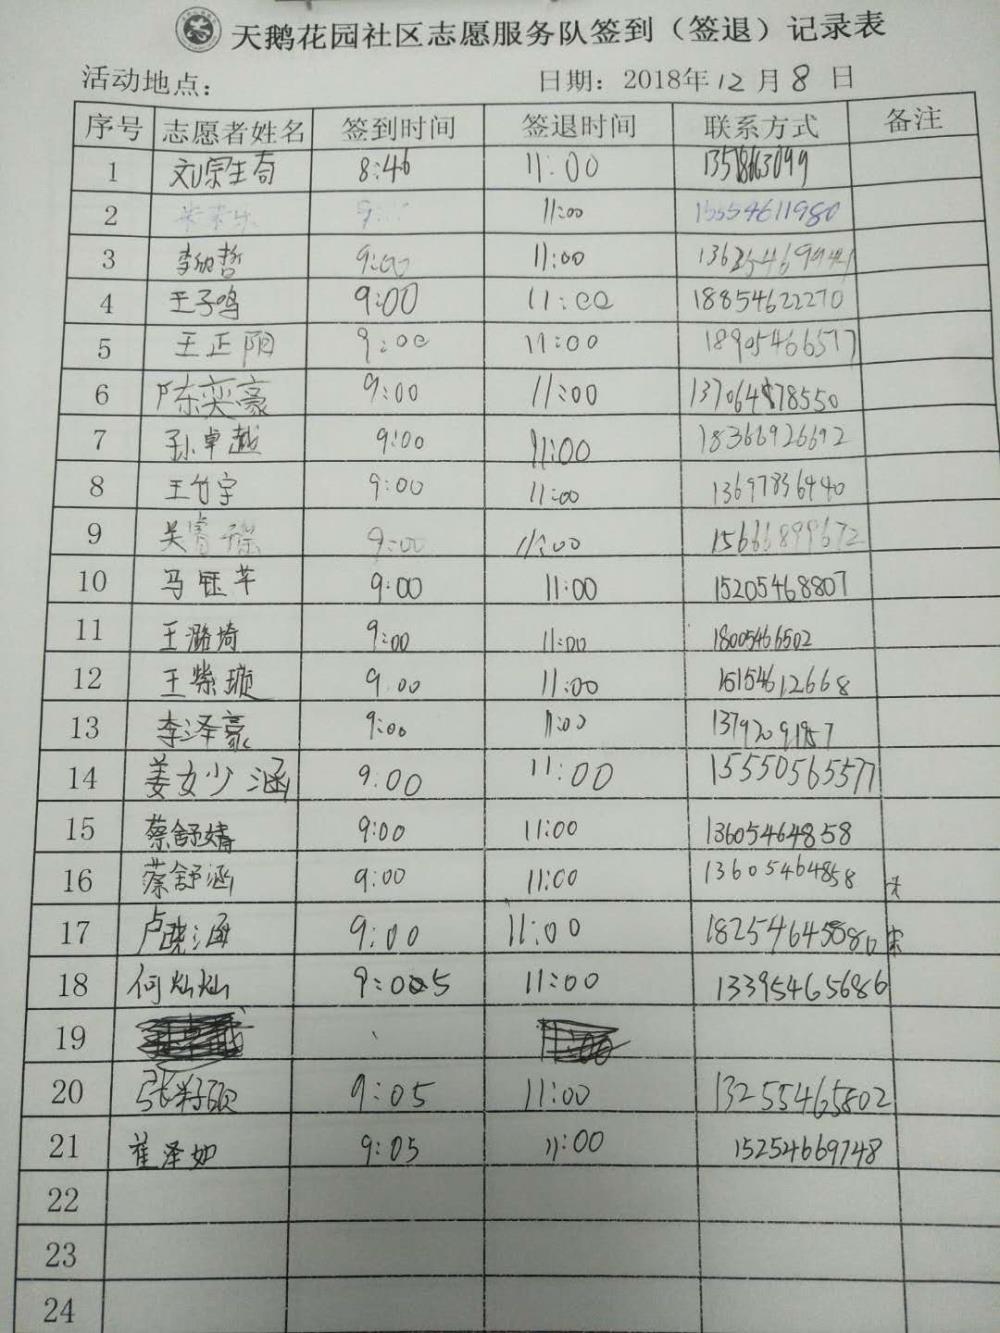 天鹅花园社区志愿服务队签到（签退）记录表
活动地点： 日期：2018年12月8日
序号 志愿者姓名 签到时间 签退时间 联系方式 备注
1 刘宗奇 8:46 11:00
2 11:00 15554611980
3 李 哲 9:00 11:00
4 王子鸣 9:00 11:00 18854622270
5 王正阳 9:00 11:00 18905466517
6 陈奕豪 9:00 11:00
7 孙卓越 9:00 11:00 18366926692
8 王竹宇 9:00 11:00 13697836440
9 吴 9:00 11:00 15666899672
10 马钰芊 9:00 11:00 15205468807
11 王潞埼 9:00 11:00 18005466502
12 王紫璇 9:00 11:00 15154612668
13 李泽豪 9:00 11:00
14 姜少涵 9:00 11:00 15550565577
15 蔡舒婧 9:00 11:00 13605464858
16 蔡舒涵 9:00 11:00 13605464858
17 卢 涵 9:00 11:00
18 何灿灿 9:05 11:00 13395465686
19
20 张 硕 9:05 11:00 13255465802
21 崔泽如 9:05 11:00 15254669748
22
23
24